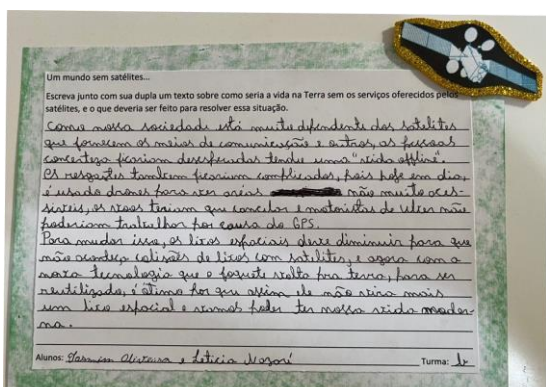 Um mundo sem satélites...
Escreva junto com sua dupla um texto sobre como seria a vida na Terra sem os serviços oferecidos pelos
satélites, e o que deveria ser feito para resolver essa situação.
Como nossa sociedade está muito dependente dos satélites
que fornecem os meios de comunicação e outros, as pessoas
concerteza ficariam desesperadas tendo uma "vida offline".
Os resgastes também ficariam complicados, pois hoje em dia,
é usado drones para ver áreas não muito aces-
síveis, os voos teriam que cancelar e motoristas de uber não
poderiam trabalhar por causa do GPS.
Para mudar isso, os lixos espaciais deve diminuir para que
não aconteça colisões de lixos com satélites, e agora com a
nova tecnologia que o foguete volta pra terra, para ser
reutilizado, é ótimo por que assim ele não vira mais
um lixo espacial e vamos poder ter nossa vida moder-
na.
Alunos: e Letícia Nazaré Turma: b